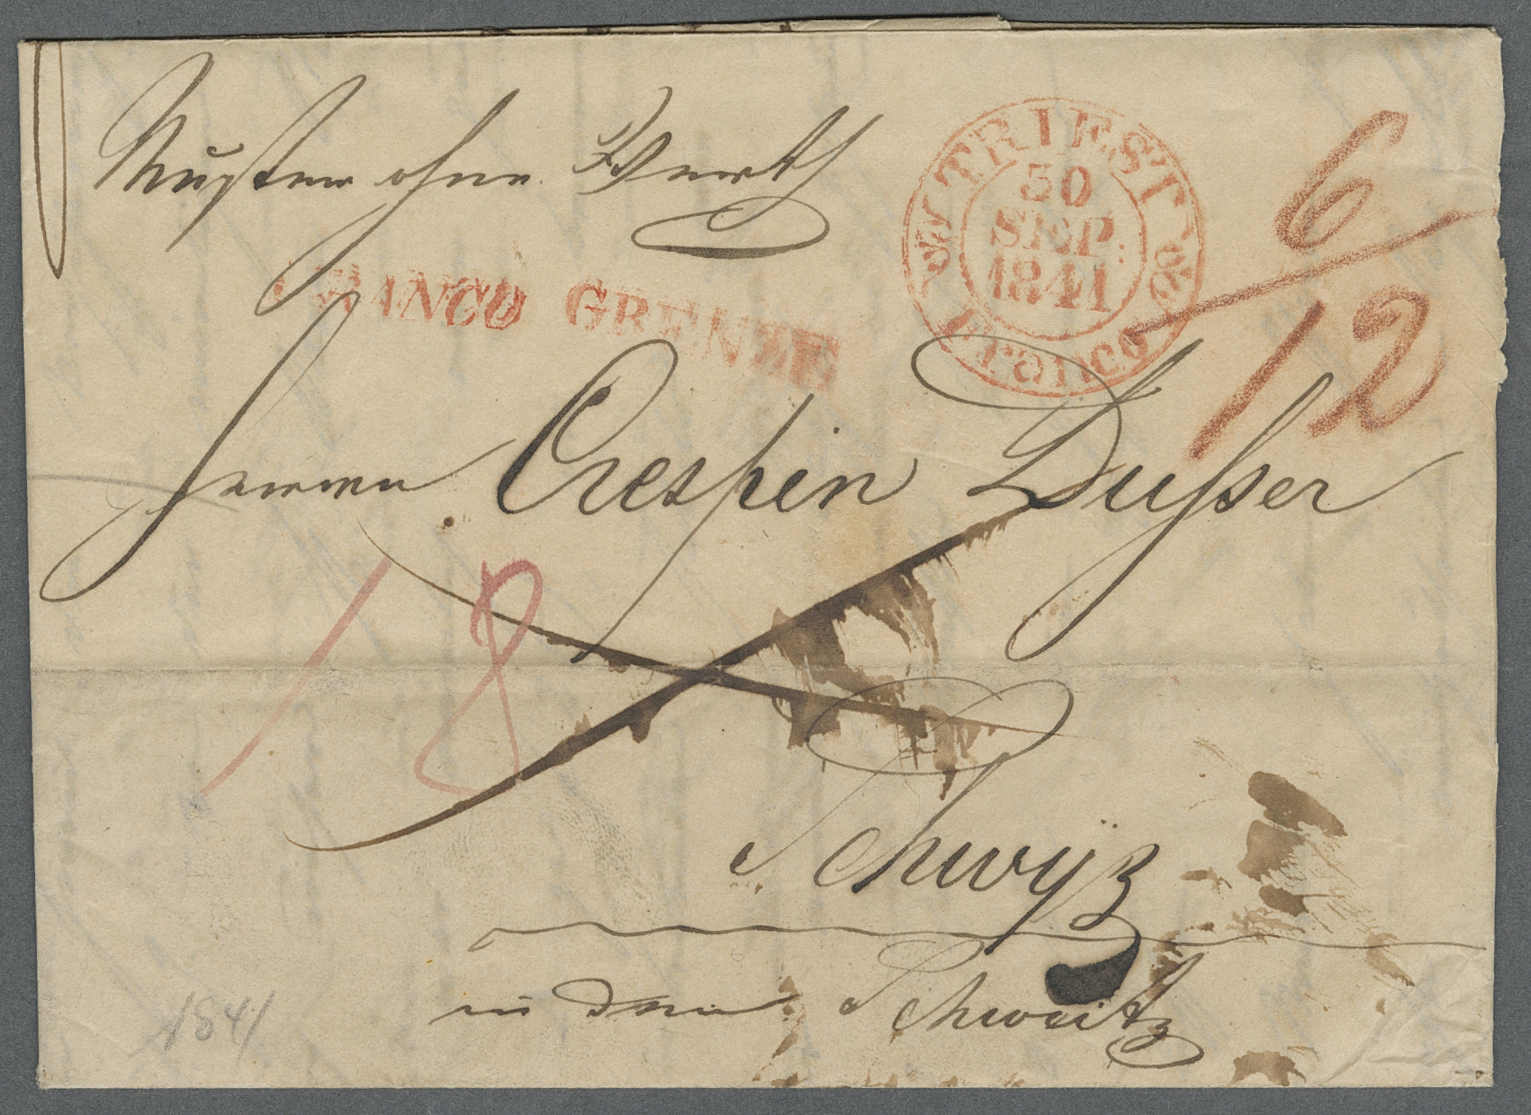 Muster ohne Werth
TRIEST
30
SEP.
1841
Franco
6
12
FRANCO GRENZE
Herrn Crespin Dußer
18
Schwÿz
in der Schweitz
1841